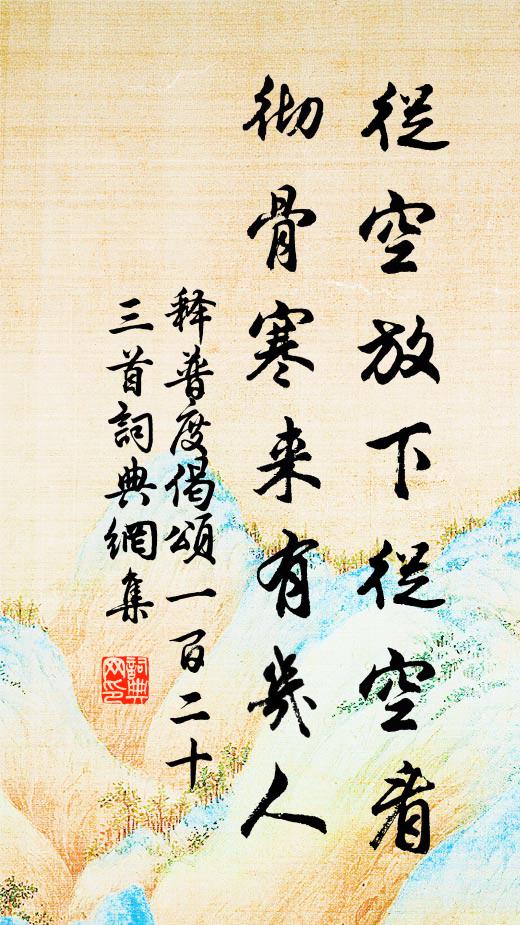 從空放下從空看
彻骨寒来有幾人
释普度偈頌一百二十
三首詞典網集
詞典網印